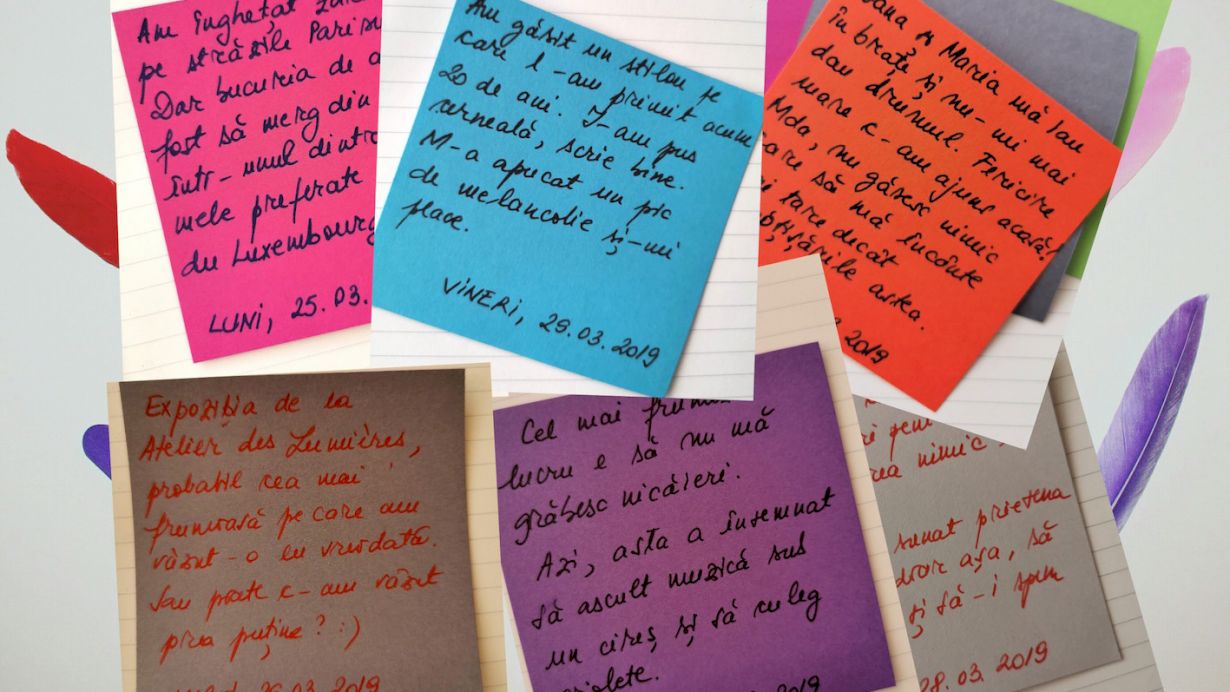 Am înghețat
pe străzile
Dar bucuria de a
fost să merg din
într-unul dintre
mele preferate
du Luxembourg
LUNI, 25.03.
Am găsit un stilou pe
care l-am primit acum
20 de ani. I-am pus
cerneală, scrie bine.
M-a apucat un pic
de melancolie și-mi
place.
VINERI, 29.03.2019
și Maria mă iau
în brațe și nu-mi mai
dau drumul. Fericire
mare c-am ajuns acasă!
Mda, nu găsesc nimic
care să mă încânte
tare decât
asta.
2019
Expoziția de la
Atelier des Lumières,
probabil cea mai
frumoasă pe care am
văzut-o eu vreodată.
Sau poate c-am văzut
prea puține? :)
26.03.2019
Cel mai
lucru e să nu mă
grăbesc nicăieri.
Azi, asta a însemnat
să ascult muzică sub
un cireș și să culeg
2019
nimic
sunat prietena
doar așa, să
și să-i spun
28.03.2019